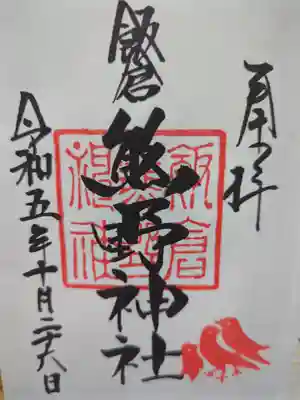 奉拝
飯倉
熊野神社
令和五年十月二十八日
飯倉
熊野
神社